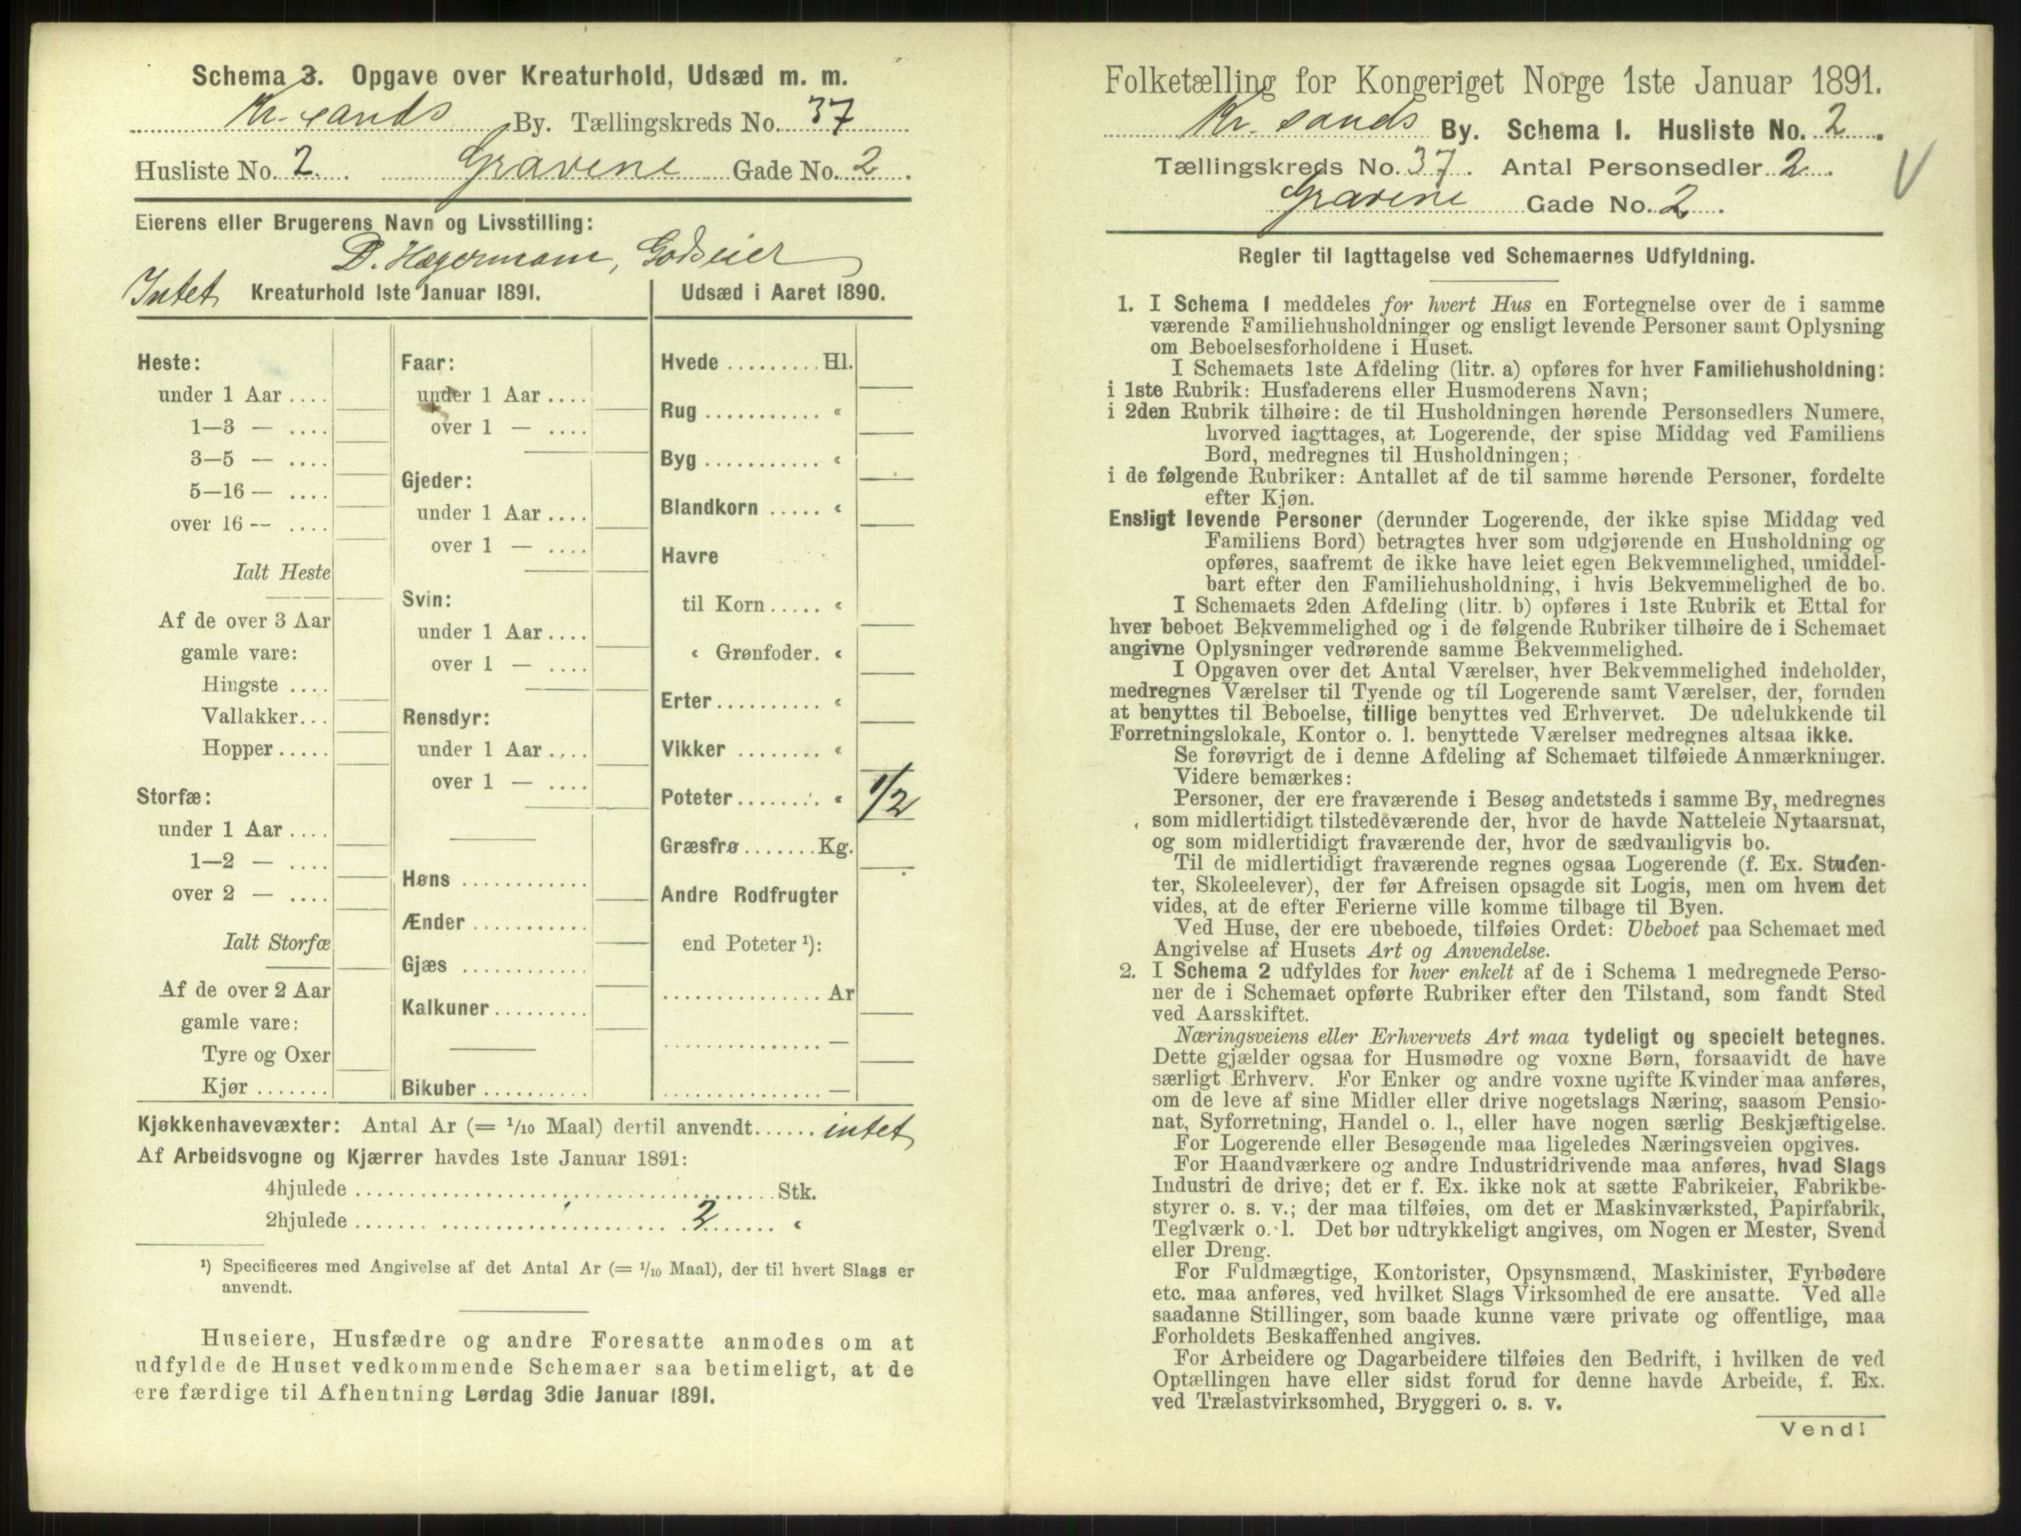 Schema 3. Opgave over Kreaturhold, Udsæd m. m.
Kr. sands By. Tællingskreds No. 37
Husliste No. 2. Gravene Gade No. 2.
Eierens eller Brugerens Navn og Livsstilling:
D. Hegermann, Godseier
Intet Kreaturhold 1ste Januar 1891.
Heste:
under 1 Aar ....
1—3 — ....
3—5 — ....
5—16 — ....
over 16 — ....
Ialt Heste
Af de over 3 Aar
gamle vare:
Hingste ....
Vallakker...
Hopper.....
Storfæ:
under 1 Aar ....
1—2 — ....
over 2 — ....
Ialt Storfæ
Af de over 2 Aar
gamle vare:
Tyre og Oxer
Kjør ........
Faar:
under 1 Aar ....
over 1 — ....
Gjeder:
under 1 Aar ....
over 1 — ....
Svin:
under 1 Aar ....
over 1 — ....
Rensdyr:
under 1 Aar ....
over 1 — ....
Høns ............
Ænder ...........
Gjæs ............
Kalkuner.........
Bikuber ..........
Udsæd i Aaret 1890.
Hvede ......... Hl.
Rug ........... «
Byg ........... «
Blandkorn ..... «
Havre
til Korn ..... «
« Grønfoder. «
Erter.......... «
Vikker ........ «
Poteter........ « 1/2
Græsfrø.......Kg.
Andre Rodfrugter
end Poteter ¹):
............... Ar
............... —
............... —
Kjøkkenhavevæxter: Antal Ar (= 1/10 Maal) dertil anvendt...... intet
Af Arbeidsvogne og Kjærrer havdes 1ste Januar 1891:
4hjulede ........................................ Stk.
2hjulede ........................... 2 ....... «
¹) Specificeres med Angivelse af det Antal Ar (= 1/10 Maal), der til hvert Slags er
anvendt.
Huseiere, Husfædre og andre Foresatte anmodes om at
udfylde de Huset vedkommende Schemaer saa betimeligt, at de
ere færdige til Afhentning Lørdag 3die Januar 1891.
Folketælling for Kongeriget Norge 1ste Januar 1891.
Kr. sands By. Schema 1. Husliste No. 2.
Tællingskreds No. 37. Antal Personsedler 2.
Gravene Gade No. 2.
Regler til Iagttagelse ved Schemaernes Udfyldning.
1. I Schema 1 meddeles for hvert Hus en Fortegnelse over de i samme
værende Familiehusholdninger og ensligt levende Personer samt Oplysning
om Beboelsesforholdene i Huset.
I Schemaets 1ste Afdeling (litr. a) opføres for hver Familiehusholdning:
i 1ste Rubrik: Husfaderens eller Husmoderens Navn;
i 2den Rubrik tilhøire: de til Husholdningen hørende Personsedlers Numere,
hvorved iagttages, at Logerende, der spise Middag ved Familiens
Bord, medregnes til Husholdningen;
i de følgende Rubriker: Antallet af de til samme hørende Personer, fordelte
efter Kjøn.
Ensligt levende Personer (derunder Logerende, der ikke spise Middag ved
Familiens Bord) betragtes hver som udgjørende en Husholdning og
opføres, saafremt de ikke have leiet egen Bekvemmelighed, umiddel-
bart efter den Familiehusholdning, i hvis Bekvemmelighed de bo.
I Schemaets 2den Afdeling (litr. b) opføres i 1ste Rubrik et Ettal for
hver beboet Bekvemmelighed og i de følgende Rubriker tilhøire de i Schemaet
angivne Oplysninger vedrørende samme Bekvemmelighed.
I Opgaven over det Antal Værelser, hver Bekvemmelighed indeholder,
medregnes Værelser til Tyende og til Logerende samt Værelser, der, foruden
at benyttes til Beboelse, tillige benyttes ved Erhvervet. De udelukkende til
Forretningslokale, Kontor o. l. benyttede Værelser medregnes altsaa ikke.
Se forøvrigt de i denne Afdeling af Schemaet tilføiede Anmærkninger.
Videre bemærkes:
Personer, der ere fraværende i Besøg andetsteds i samme By, medregnes
som midlertidigt tilstedeværende der, hvor de havde Natteleie Nytaarsnat,
og som midlertidigt fraværende der, hvor de sædvanligvis bo.
Til de midlertidigt fraværende regnes ogsaa Logerende (f. Ex. Studen-
ter, Skoleelever), der før Afreisen opsagde sit Logis, men om hvem det
vides, at de efter Ferierne ville komme tilbage til Byen.
Ved Huse, der ere ubeboede, tilføies Ordet: Ubeboet paa Schemaet med
Angivelse af Husets Art og Anvendelse.
2. I Schema 2 udfyldes for hver enkelt af de i Schema 1 medregnede Perso-
ner de i Schemaet opførte Rubriker efter den Tilstand, som fandt Sted
ved Aarsskiftet.
Næringsveiens eller Erhvervets Art maa tydeligt og specielt betegnes.
Dette gjælder ogsaa for Husmødre og voxne Børn, forsaavidt de have
særligt Erhverv. For Enker og andre voxne ugifte Kvinder maa anføres,
om de leve af sine Midler eller drive nogetslags Næring, saasom Pensio-
nat, Syforretning, Handel o. l., eller have nogen særlig Beskjæftigelse.
For Logerende eller Besøgende maa ligeledes Næringsveien opgives.
For Haandværkere og andre Industridrivende maa anføres, hvad Slags
Industri de drive; det er f. Ex. ikke nok at sætte Fabrikeier, Fabrikbe-
styrer o. s. v.; der maa tilføies, om det er Maskinværksted, Papirfabrik,
Teglværk o. l. Det bør udtrykkeligt angives, om Nogen er Mester, Svend
eller Dreng.
For Fuldmægtige, Kontorister, Opsynsmænd, Maskinister, Fyrbødere
etc. maa anføres, ved hvilket Slags Virksomhed de ere ansatte. Ved alle
saadanne Stillinger, som baade kunne være private og offentlige, maa
Forholdets Beskaffenhed angives.
For Arbeidere og Dagarbeidere tilføies den Bedrift, i hvilken de ved
Optællingen have eller sidst forud for denne havde Arbeide, f. Ex.
ved Trælastvirksomhed, Bryggeri o. s. v.
Vend!